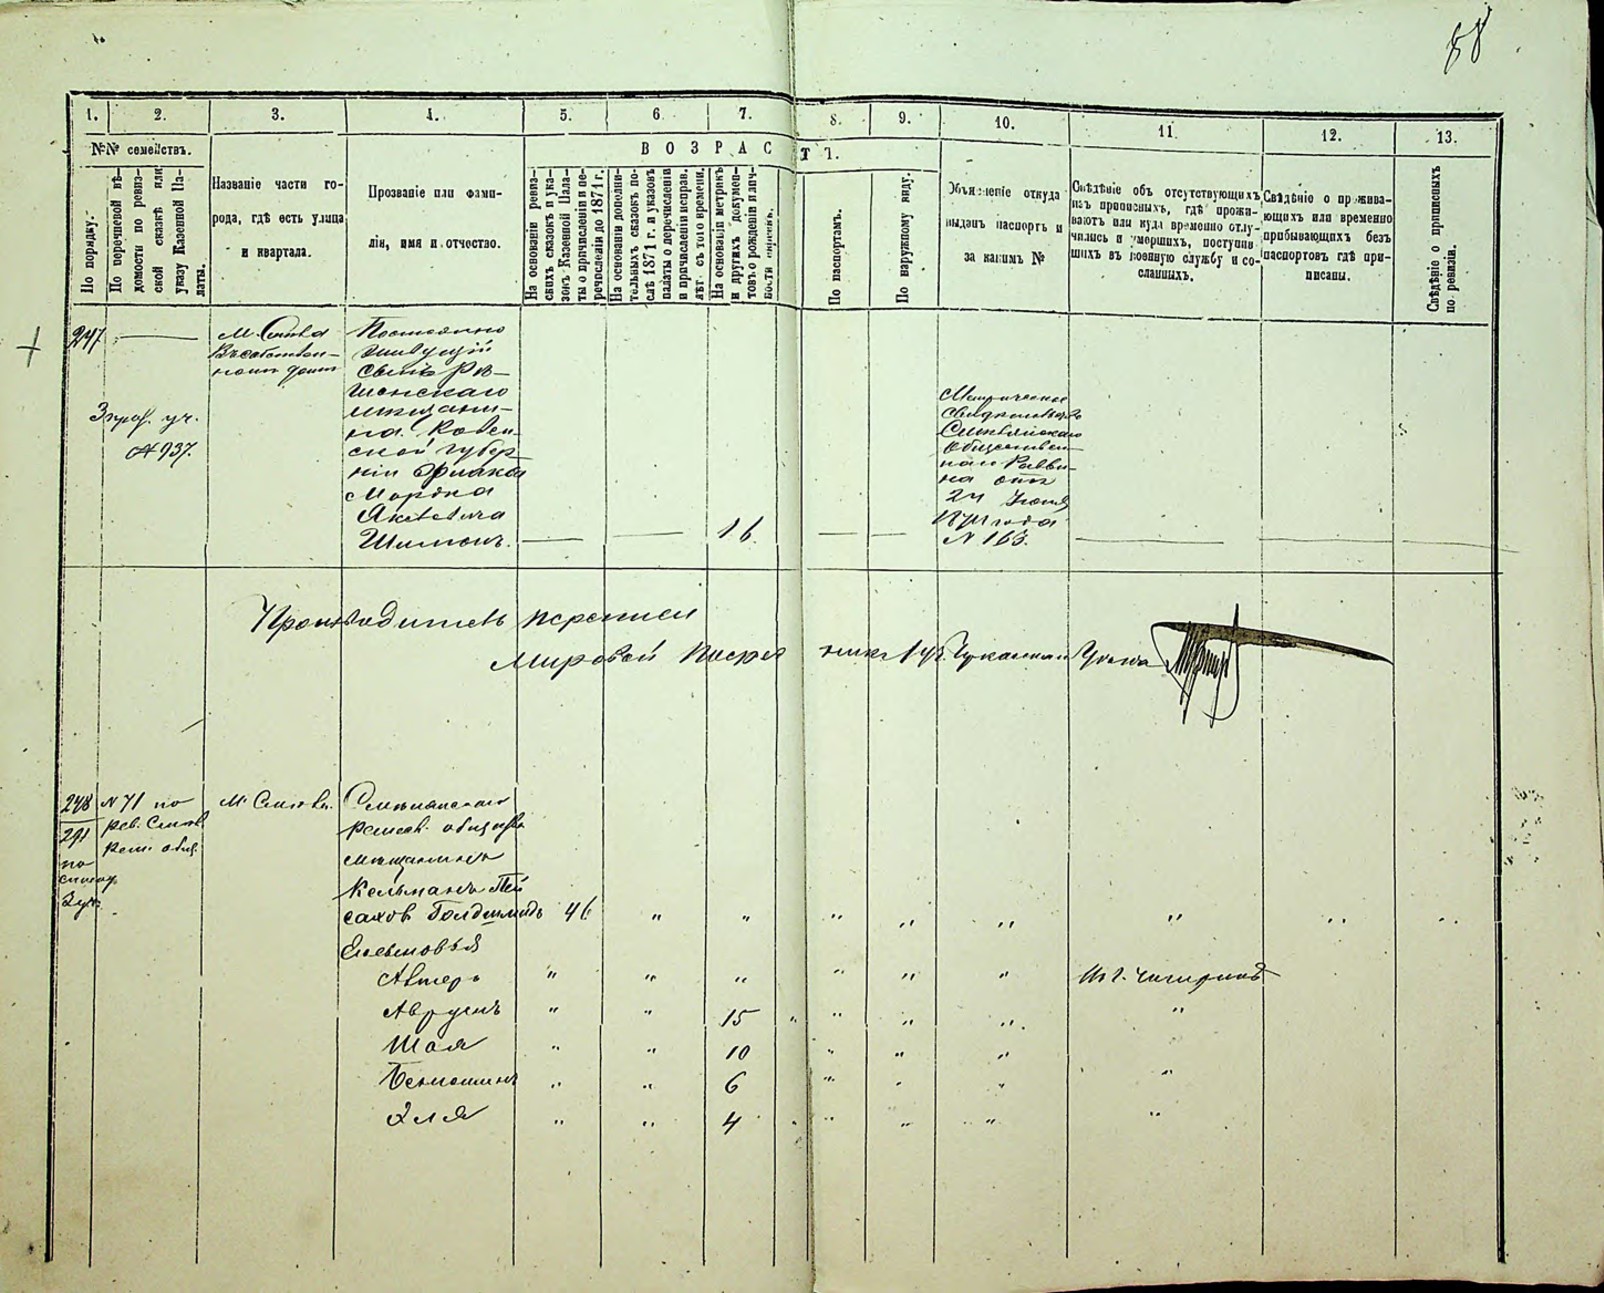 88
1. 2. 3. 4. 5. 6 7. 8. 9. 10. 11 12. 13.
№№ семействъ.
По порядку.
По перечневой вѣ-
домости по ревиз-
ской сказкѣ или
указу Казенной Па-
латы.
Названіе части го-
рода, гдѣ есть улица
и квартала.
Прозваніе или фами-
лія, имя и отчество.
ВОЗРАСТЪ.
На основаніи ревиз-
скихъ сказокъ и ука-
зовъ Казенной Пала-
ты о причисленіи и пе-
речисленіи до 1871 г.
На основаніи дополни-
тельныхъ сказокъ по-
слѣ 1871 г. и указовъ
палаты о перечисленіи
и причисленіи неправ.
лѣт съ того времени.
На основаніи метрикъ
и другихъ докумен-
товъ о рожденіи и лич-
ности
По паспортамъ.
По наружному виду.
Объясненіе откуда
выданъ паспортъ и
за какимъ №
Свѣдѣніе объ отсутствующихъ
изъ приписныхъ, гдѣ прожи-
ваютъ или куда временно отлу-
чились и умершихъ, поступив-
шихъ въ военную службу и со-
сланныхъ.
Свѣдѣніе о прожива-
ющихъ или временно
прибывающихъ безъ
паспортовъ гдѣ при-
писаны.
Свѣдѣніе о приписныхъ
по ревизіи.
247.
М. Смѣла
Въ собствен-
номъ домѣ
Постоянно
живущій
сынъ
мѣщани-
на Ковен-
ской губер-
ніи
Мордка
Шимонъ.
16
№ 937.
Метрическое
свидѣтельство
Смѣлянскаго
Обществен-
наго Равви-
на отъ
24 Іюня
1874 года
№ 163.
Производитель переписи
Мировой Посредникъ 1 уч. Уѣзда
248
291
по
2 уч.
N 71 по
рев. Смѣл.
рем. общ.
М. Смѣла.
Смѣлянскаго
ремесл. общества
мѣщанинъ
Кельманъ Пей
саховъ Голдшмидъ 46 " " " " " " " "
Сыновья
" " " " " " Въ г. Чигиринѣ
Аврумъ " " 15 " " " "
Шая " " 10 " " "
Беньоминъ " " 6 " " " "
Эля " " 4 " " " "